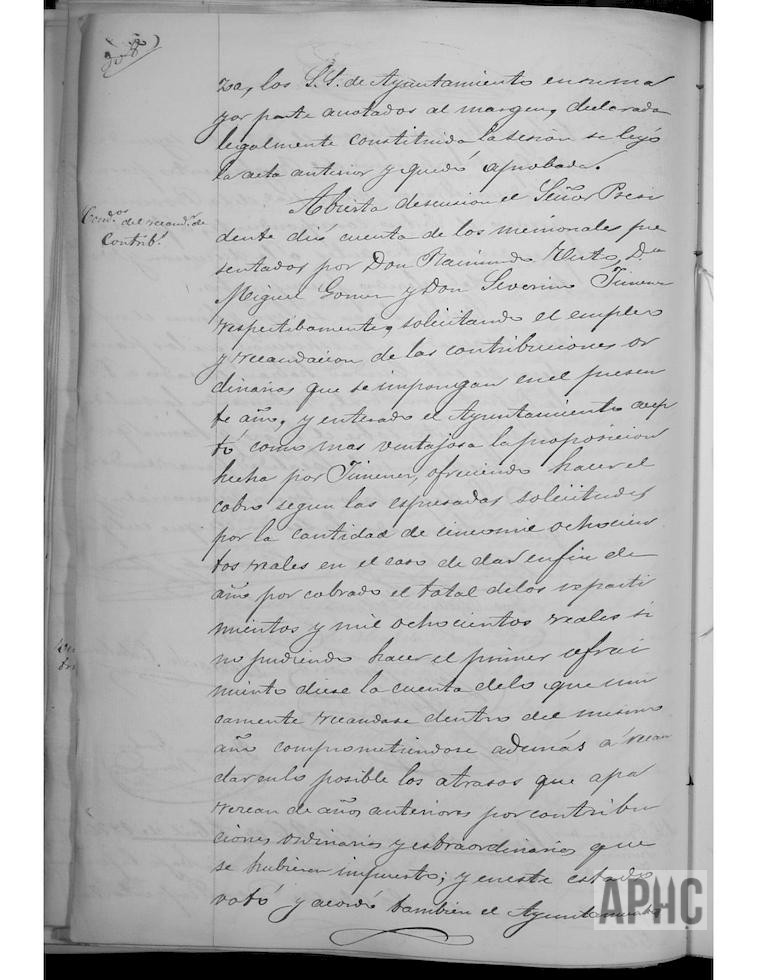 za, los S.S. de Ayuntamiento en su ma
yor parte anotados al margen, declarada
legalmente constituida la sesion se leyó
la acta anterior y quedó aprobada.
Condos del recaudr. de
Contribs.
Abierta descusion el Señor Presi
dente dió cuenta de los memoriales pre
sentados por Don Raimundo Dn
Miguel Gomez y Don Severino Jimenez
respectibamente, solicitando el empleo
y recaudacion de las contribuciones or
dinarias que se impongan en el presen
te año, y enterado el Ayuntamiento acep
tó como mas ventajosa la proposicion
hecha por Jimenez, ofreciendo hacer el
cobro segun las espresadas solicitudes
por la cantidad de cinco mil ochocien
tos reales en el caso de dar en fin de
año por cobrado el total de los reparti
mientos y mil ochocientos reales si
no pudiendo hacer el primer ofreci
miento diese la cuenta de lo que uni
camente recaudase dentro del mismo
año comprometiendose además á recau
dar en lo posible los atrasos que apa
rezcan de años anteriores por contribu
ciones ordinarias y estraordinarias que
se hubieran impuesto; y en este estado
votó y acordó tambien el Ayuntamiento
APHC